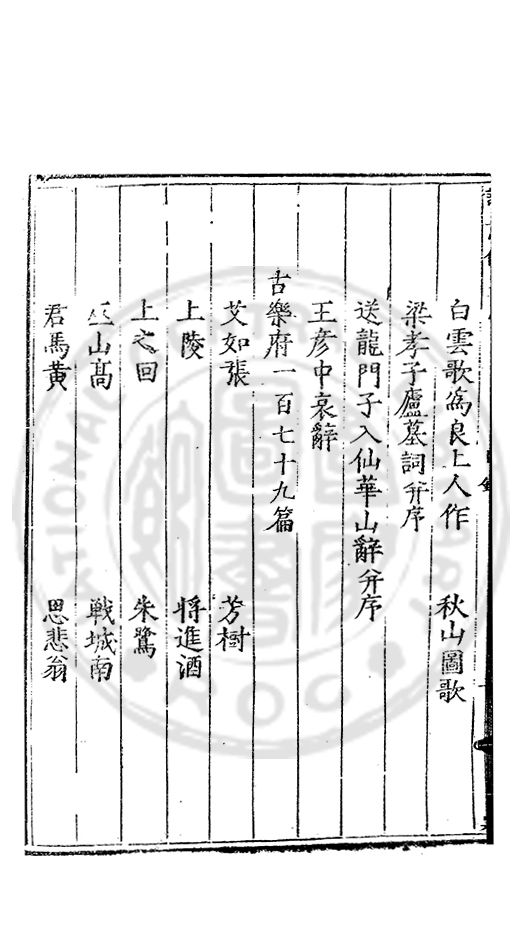 白雲歌為良上人作　秋山圖歌
梁孝子廬墓詞并序
送龍門子入仙華山辭并序
王彦中哀辭
古樂府一百七十九篇
艾如張　芳樹
上陵　將進酒
上之回　朱鷺
巫山高　戰城南
君馬黃　思悲翁